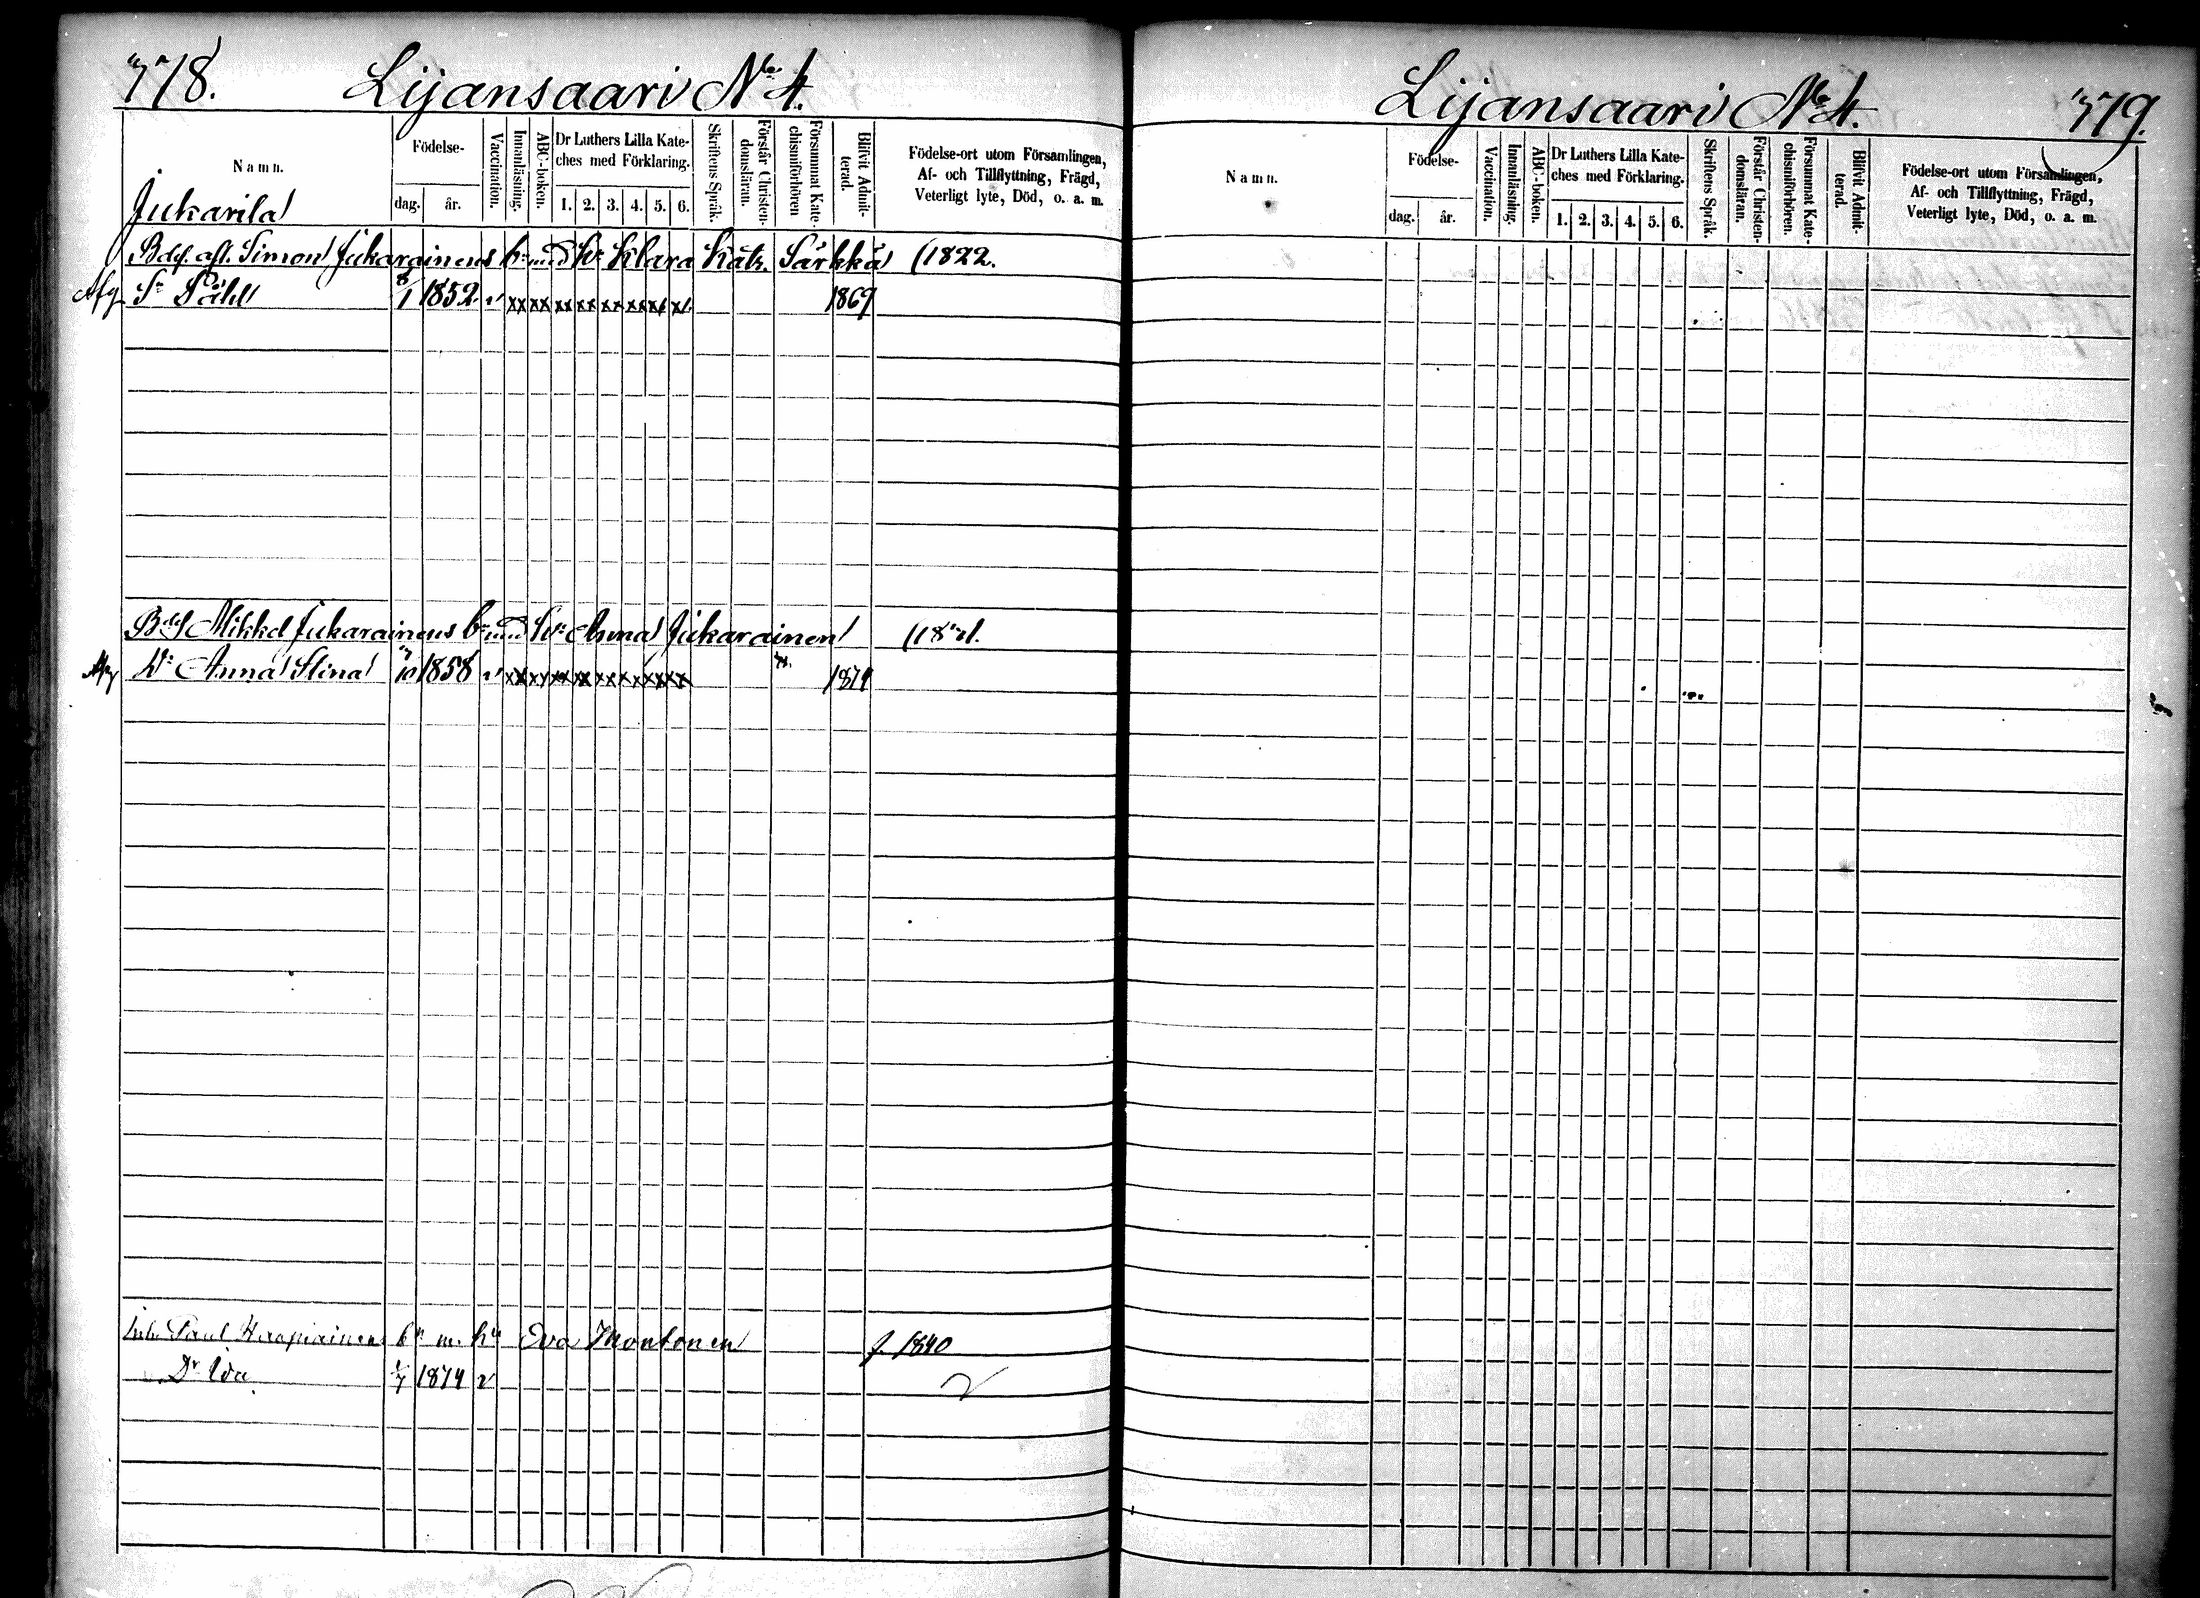 778. Lijansaari No 4.
Namn.
Födelse-
dag.
år.
Vaccination.
Innanläsning.
ABC-boken.
Dr Luthers Lilla Kate-
ches med Förklaring.
1. 2. 3. 4. 5. 6.
Skriftens Språk.
Förstår Christen-
domsläran.
Försummat Kate-
chismiförhören
Blifvit Admit-
terad.
Födelse-ort utom Församlingen,
Af- och Tillflyttning, Frägd,
Veterligt lyte, Död, o. a. m.
Jukarila
Bdsf. afl. Simon Jukarainens bn med hu Klara Kats. Särkkä (1822.
Afg Sn Påhl 8/1 1852 v xx xx xx xx xx xx xx x 1869
Bdsf Mikkel Jukarainens bn med hu Anna Jukarainen
Afg Dr Anna Stina 7/10 1858 v xx xx xx xx xx xx xx xx 1874
Paul Haapiainens bn m. hu Eva Montonen f. 1840
Dr Ida 1/7 1874 v
Lijansaari No 4. 779.
Namn.
Födelse-
dag.
år.
Vaccination.
Innanläsning.
ABC-boken.
Dr Luthers Lilla Kate-
ches med Förklaring.
1. 2. 3. 4. 5. 6.
Skriftens Språk.
Förstår Christen-
domsläran.
Försummat Kate-
chismiförhören.
Blifvit Admit-
terad.
Födelse-ort utom Församlingen,
Af- och Tillflyttning, Frägd,
Veterligt lyte, Död, o. a. m.